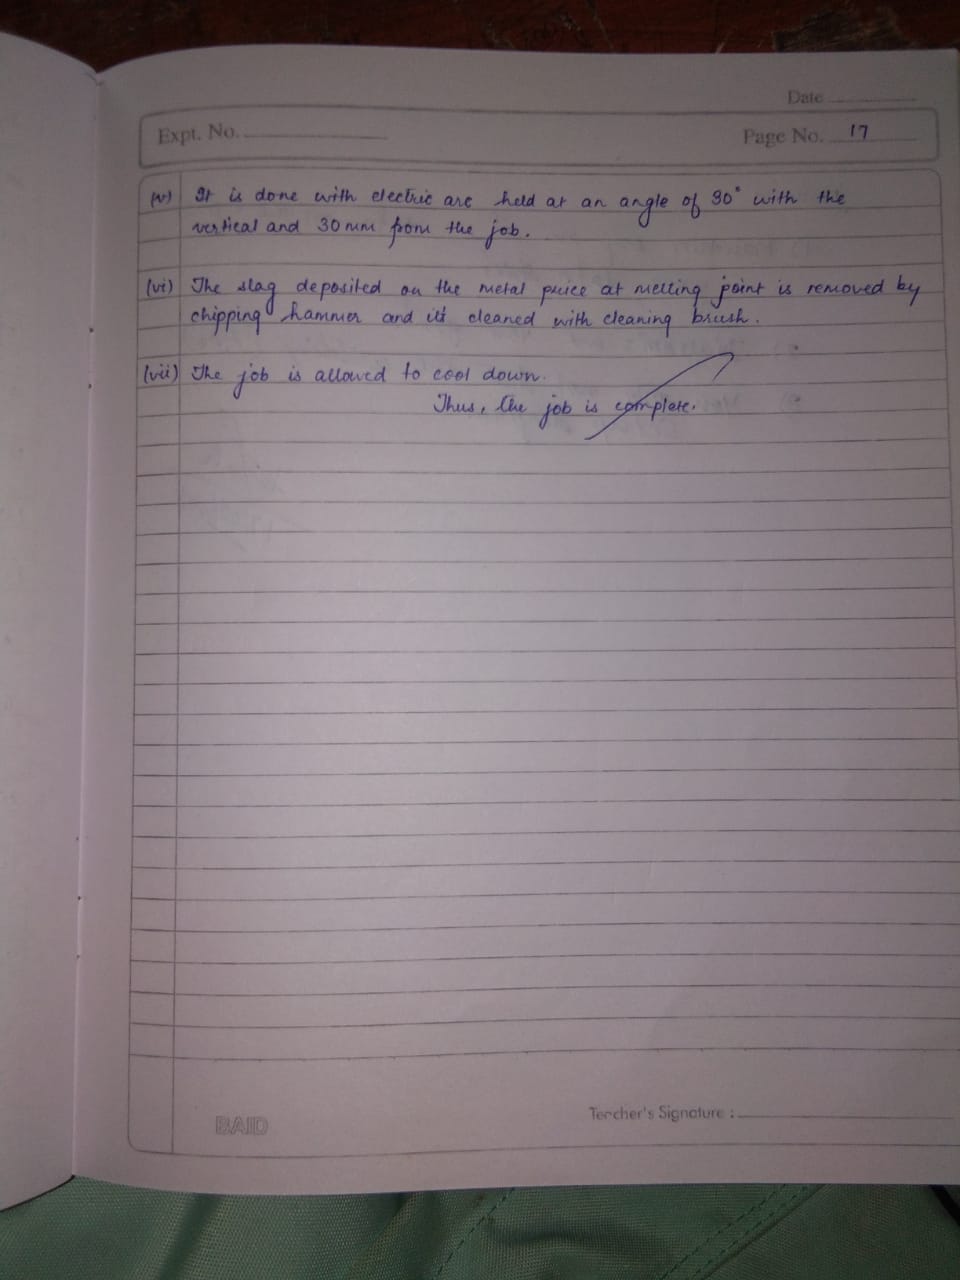 Date
Expt. No.
Page No. 17
(v) It is done with electric arc held at an angle of 30° with the
vertical and 30 mm from the job.
(vi) The slag deposited on the metal peice at melting point is removed by
chipping hammer and it's cleaned with cleaning brush.
(vii) The job is allowed to cool down.
Thus, the job is complete.
BAID
Teacher's Signature :